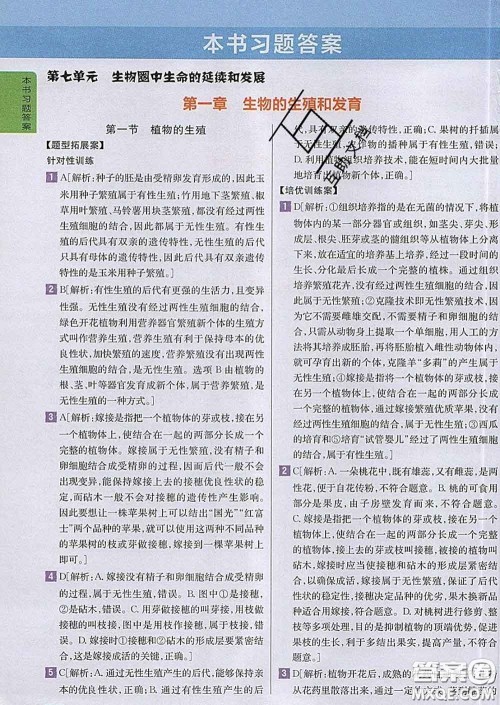 本书习题答案
本书习题答案
第七单元　生物圈中生命的延续和发展
第一章　生物的生殖和发育
第一节　植物的生殖
【题型拓展案】
针对性训练
1 A[解析:种子的胚是由受精卵发育形成的,因此玉
米用种子繁殖属于有性生殖;竹用地下茎繁殖、椒
草用叶繁殖、马铃薯用块茎繁殖,都没有经过两性
生殖细胞的结合,因此都属于无性生殖。有性生
殖的后代具有双亲的遗传特性,无性生殖的后代
只具有母体的遗传特性。因此后代具有双亲遗传
特性的是玉米用种子繁殖。]
2 B[解析:有性生殖的后代有更强的生活力,且变异
性强。无性生殖没有经过两性生殖细胞的结合,
绿色开花植物利用营养器官繁殖新个体的生殖方
式叫作营养生殖,营养生殖有利于保持母本的优
良性状,加快繁殖的速度,营养繁殖没有出现两性
生殖细胞的结合,是无性生殖。选项B由植物的
根、茎、叶等器官发育成新个体,属于营养繁殖,是
无性生殖的一种方式。]
3 A[解析:嫁接是指把一个植物的芽或枝,接在另
一个植物体上,使结合在一起的两部分长成一个
完整的植物体。嫁接属于无性繁殖,没有精子和
卵细胞结合成受精卵的过程,因而后代一般不会
出现变异,能保持嫁接上去的接穗优良性状的稳
定,而砧木一般不会对接穗的遗传性产生影响。
因此要想让一株苹果树上可以结出“国光”“红富
士”两个品种的苹果,就可以使用这两种不同品种
的苹果树的枝或芽做接穗,嫁接到同一棵苹果树上
即可。]
4 D[解析:A.嫁接没有精子和卵细胞结合成受精卵
的过程,因此属于无性生殖,错误。B.图中①是接
穗,②是砧木,错误。C.用芽做接穗的叫芽接,用枝做
接穗的叫枝接,图中是用芽做接穗,属于芽接,错
误。D.嫁接时①和②的形成层要紧密结合,这是
嫁接成活的关键,正确。]
5 C[解析:A.通过无性生殖产生的后代,能保持亲
本的优良性状,正确。B.通过有性生殖产生的后
代,具有双亲的遗传特性,正确。C.果树的扦插属
于无性生殖,
D.利用植物组织培养技术,能在短时间内大批量
地培育出植物新个体,正确。]
【培优训练案】
1 D[解析:①组织培养指的是在无菌的情况下,将植
物体内的某一部分器官或组织,如茎尖、芽尖、形
成层、根尖、胚芽或茎的髓组织等从植物体上分离
下来,放在适宜的培养基上培养,经过一段时间的
生长、分化最后长成一个完整的植株。通过组织
培养培育花卉,没有经过两性生殖细胞的结合,因
此属于无性繁殖;②克隆技术即无性繁殖技术,因
为它不需要雌雄交配,不需要精子和卵子的结合,
只需从动物身上提取一个单细胞,用人工的方法
将其培养成胚胎,再将胚胎植入雌性动物体内,
就可孕育出新的个体,克隆羊“多莉”的产生属于
无性繁殖;③嫁接是指把一个植物体的芽或枝,接
在另一个植物体上,使结合在一起的两部分长成一
个完整的植物体,通过嫁接繁殖优质苹果,没有
经过两性生殖细胞的结合,属于无性繁殖;③西瓜
的培育和⑤培育“试管婴儿”经过了两性生殖细胞
的结合,属于有性生殖。]
2 C[解析:A.一朵桃花中,既有雄蕊,又有雌蕊,是两
性花,能自花传粉,不符合题意。B.桃的可食用部
分是果皮,由子房壁发育而来,不符合题意。C.
被嫁接上去的芽或枝叫接穗,被接的植物体叫砧
木,嫁接时应当使接穗和砧木的形成层紧密结合
以确保成活,嫁接属于无性繁殖,保证了后代
性状的稳定性,接穗决定接本性状表现,故嫁接的
性状是接穗的性状,符合题意。D.对桃树进行修剪、整
枝等多项处理,目的是抑制植物的顶端优势,促进
侧芽的生长,利于多结出果实,提高产量,不符合
题意。]
3 C[解析:A.植物开花后,成熟的
从花药里散落出来,通过一定的